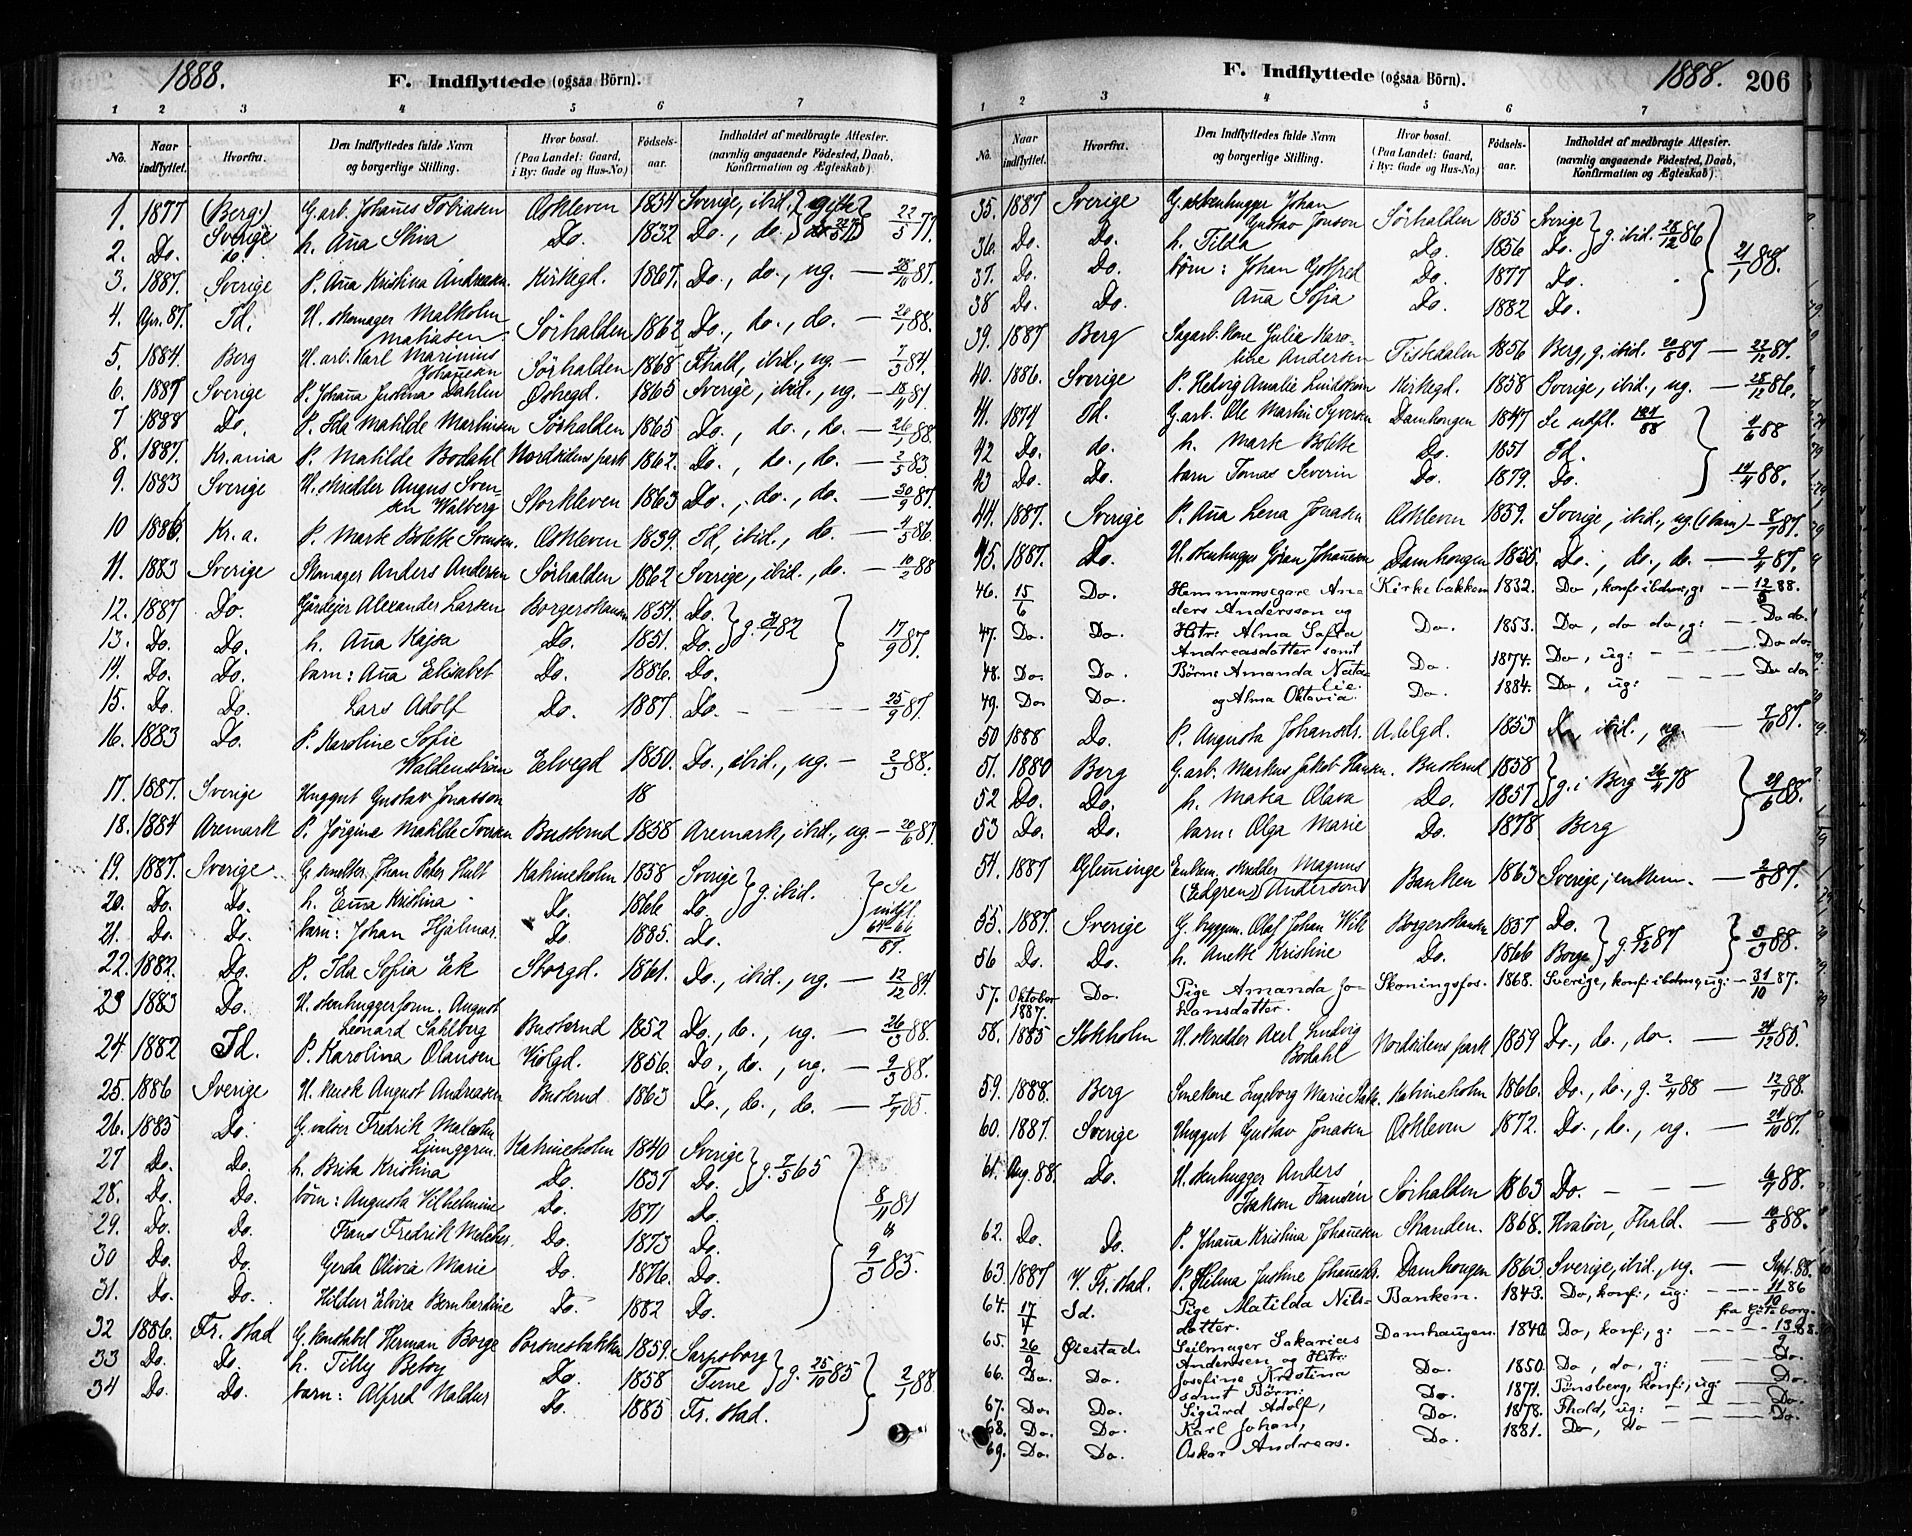 1888.
F. Indflyttede (ogsaa Börn).
1 2 3 4 5 6 7
No. Naar indflyttet. Hvorfra. Den Indflyttedes fulde Navn og borgerlige Stilling. Hvor bosat. (Paa Landet: Gaard, i By: Gade og Hus-No.) Fødsels-aar. Indholdet af medbragte Attester. (navnlig angaaende Fødested, Daab, Konfirmation og Ægteskab)
1. 1877 (Berg.) Sverige G. arb. Johañes Tobiasen Oskleven 1834 Sverige, ibid. gift 22/5 77.
2. Do. do. h. Aña Stina Do. 1832 Do., do.
3. 1887. Sverige P. Aña Kristina Andreasen Kirkegd. 1867. Do., do., ug. — 28/10 87.
4. Apr. 87. Id. U. skomager Malkolm Mahiasen Sørhalden 1862 Do., do., do. — 20/1 88.
5. 1884. Berg U. arb. Karl Marinius Johañesen Sørhalden 1868 Fhald, ibid., ug. — 7/3 84.
6. 1887 Sverige P. Johaña Justina Dahlin Østregd. 1865 Sverige, ibid., ug. — 18/11 87.
7 1888 Do. P. Ida Matilde Martinsen Sørhalden 1865 Do., do., do. — 26/1 88.
8. 1887. Kr.ania P. Matilde Bodahl Nordsidens park 1862. Do., do., do. — 2/5 83.
9. 1883 Sverige U. skredder Angus Svensen Walberg Storkleven 1863 Do., do., do. — 30/9 87.
10 1886 Kr.a. P. Mark Bolette Svensen. Oskleven 1839. Id, ibid., do. — 4/5 86.
11. 1883 Sverige Skomager Anders Andersen Sørhalden 1862 Sverige, ibid., do. — 10/2 88
12. 1887 Do. Gårdejer Alexander Larsen Borgerskansen 1854. Do. g. 82 17/9 87.
13. Do. Do. h. Aña Kajsa Do. 1851. Do.
14. Do. Do. barn: Aña Elisabet Do. 1886. Do.
15. Do. Do. Lars Adolf Do. 1887. Do. — 25/9 87.
16. 1883 Do. P. Karoline Sofie Waldenström Elvegd 1850. Do., ibid., ug. — 2/3 88.
17. 1887. Sverige Unggut Gustav Jonasson 18
18. 1884 Aremark P. Jörgine Matilde Iversen Buskrud 1858 Aremark, ibid., ug. — 20/6 87.
19. 1887. Sverige G. smelter. Johan Peter Hult Katrineholm 1858 Sverige g. ibid. Se indfl. 64-66 87.
20. Do. Do. h. Eña Kristina Do. 1866 Do.
21. Do. Do. barn: Johan Hjalmar. Do. 1885. Do.
22. 1882. Do. P. Ida Sofia Ek Storgd. 1861. Do., ibid., ug. — 12/12 84.
23 1883 Do. U. stenhuggerform. August Leonard Sahlberg Buskrud 1852 Do., do., ug. — 26/3 88.
24. 1882 Id. P. Karolina Olausen Violgd. 1856. Do., do., ug. — 9/3 88.
25. 1886 Sverige U. kusk August Andreasen Buskrud 1863 Do., do., do. — 7/7 85.
26. 1885 Do. G. valser Fredrik Malcolm Ljunggren Katrineholm 1840 Sverige g. 7/5 65 8/11 81 & 9/3 83.
27 Do. Do. h. Brita Kristina Do. 1837 Do.
28. Do. Do. börn: Augusta Vilhelmine Do. 1871 Do.
29. Do. Do. Frans Fredrik Melcher. Do. 1873 Do.
30 Do. Do. Gerda Olivia Marie Do. 1876. Do.
31. Do. Do. Hildur Elvira Bernhardine Do. 1882 Do.
32 1886. Fr. stad G. konstabel Herman Borge Borsnesbakken 1859. Sarpsborg g. 25/10 85 2/1 88
33 Do. Do. h. Tilly Betsy Do. 1858 Time
34 Do. Do. barn: Alfred Valdus Do. 1885 Fr. stad.
F. Indflyttede (ogsaa Börn).
1888. 206
1 2 3 4 5 6 7
No. Naar indflyttet. Hvorfra. Den Indflyttedes fulde Navn og borgerlige Stilling. Hvor bosat. (Paa Landet: Gaard, i By: Gade og Hus-No.) Fødsels-aar. Indholdet af medbragte Attester. (navnlig angaaende Fødested, Daab, Konfirmation og Ægteskab)
35. 1887 Sverige G. stenhugger Johan Gustav Jonson Sørhalden 1855 Sverige g. ibid. 28/12 86 21/1 88.
36. Do. Do. h. Tilda Do. 1856 Do.
37. Do. Do. börn: Johan Gotfred Do. 1877 Do.
38 Do. Do. Aña Sofia Do. 1882 Do.
39. 1887 Berg Sagarb. kone Julia Karoline Andersen Tistedalen 1856 Berg, g. ibid. 20/5 87 — 22/12 87.
40. 1886. Sverige P. Hedvig Amalie Lindström Kirkegd. 1858 Sverige, ibid., ug. — 28/12 86.
41. 1874 Id. G. arb. Ole Martin Syversen Damhougen 1847 Se udfl. 88 4/6 88
42 Do. do. h. Mark Bolette Do. 1851 Id.
43 Do. Do. barn Tomas Severin Do. 1879. Do. 14/4 88.
44. 1887. Sverige P. Aña Lena Jonasen Oskleven 1859. Sverige, ibid., ug. (1 barn) — 8/7 87.
45. 1887. Do. U. stenhugger Göran Johañesen Damhougen 1855 Do., do., do. — 9/4 87.
46. 15/6 Do. Hemmansegare Anders Andersson og Kirkebakken 1832. Do, konf: ibdm, g: — 12/5 88.
47. Do. Do. Hstr: Alma Sofia Andreasdotter samt Do. 1853. Do, do do, g: — Do do.
48. Do. Do. Børn: Amanda Natalie Do. 1874. Do, ug: — Do do.
49. Do. Do. og Alma Oktavia. Do. 1884. Do, ug: — Do do.
50 1888 Do. P. Augusta Johansdt. A.b.lgd. 1853 do, ibid., ug. — 7/10 87.
51. 1880 Berg G. arb. Markus Jakob Hansen. Buskrud 1858 g. i Berg 26/4 78 29/6 88.
52 Do. Do. h. Matea Olava Do. 1857
53 Do. Do. barn: Olga Marie Do. 1878 Berg
54. 1887 Glemminge Enkem. skredder Magnus (Edgren) Anderson Banken 1863 Sverige, enkem. — 2/8 87.
55. 1887. Sverige G. bryggm. Olaf Johan Wik Borgerskansen 1857 Do. g. 8/12 87 3/3 88.
56 Do. Do. h. Anette Kristine Do. 1866 Borge
57. Oktober 1887. Do. Pige Amanda Johansdatter. Skoningsfos. 1868. Sverige, konf: ibdm, ug: — 31/10 87.
58. 1885 Stokholm U. skredder Axel Ludvig Bodahl Nordsidens park 1859 Do., do., do. — 24/12 85.
59. 1888. Berg Smekone Ingeborg Marie Katrineholm 1866. Do., do., g. 2/4 88 — 12/7 88.
60. 1887. Sverige Unggut Gustav Jonasen Oskleven 1872. Do., do., ug. — 24/10 87.
61. Aug. 88. Do. U. stenhugger Anders Isakson Fransén Sørhalden 1863 Do. — 6/7 88.
62. Do. Do. P. Johaña Kristina Johañesen Skanden. 1868. Hvaløer, Fhald. — 10/8 88.
63. 1887 V. Fr. stad. P. Hilma Justine Johañesdt. Damhougen 1863. Sverige, ibid., ug. — Sept. 88.
64. 17/7 Id. Pige Matilda Nilsdotter. Banken. 1843. Do, konf:, ug: — 11/10 86 fra Göteborg.
65. 26/9 Øiestad. Seilmager Sakarias Andersen og Hstr: Damhaugen. 1840. Do, konf:, g: — 13/9 88.
66. Do. Do. Josefine Kristina samt Børn: Do. 1850. Do, do, g: — Do.
67. Do. Do. Sigurd Adolf, Do. 1871. Tønsberg, konf:, ug: — Do.
68. Do. Do. Karl Johan, Do. 1878. Fhald, ug: — Do.
69. Do. Do. Oskar Andreas. Do. 1881. Do, do — Do.